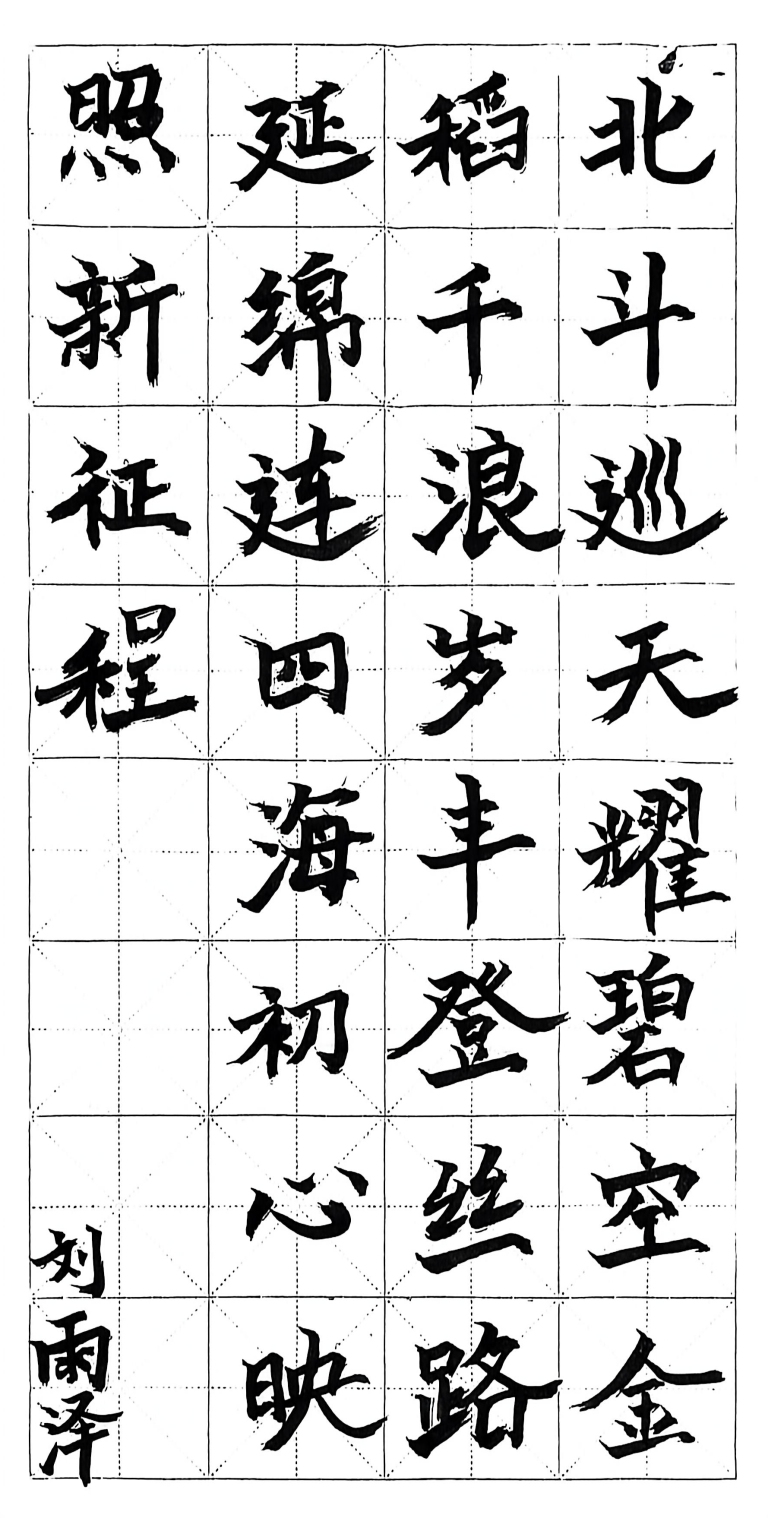 北斗巡天耀碧空金
稻千浪岁丰登丝路
延绵连四海初心映
照新征程
刘雨泽